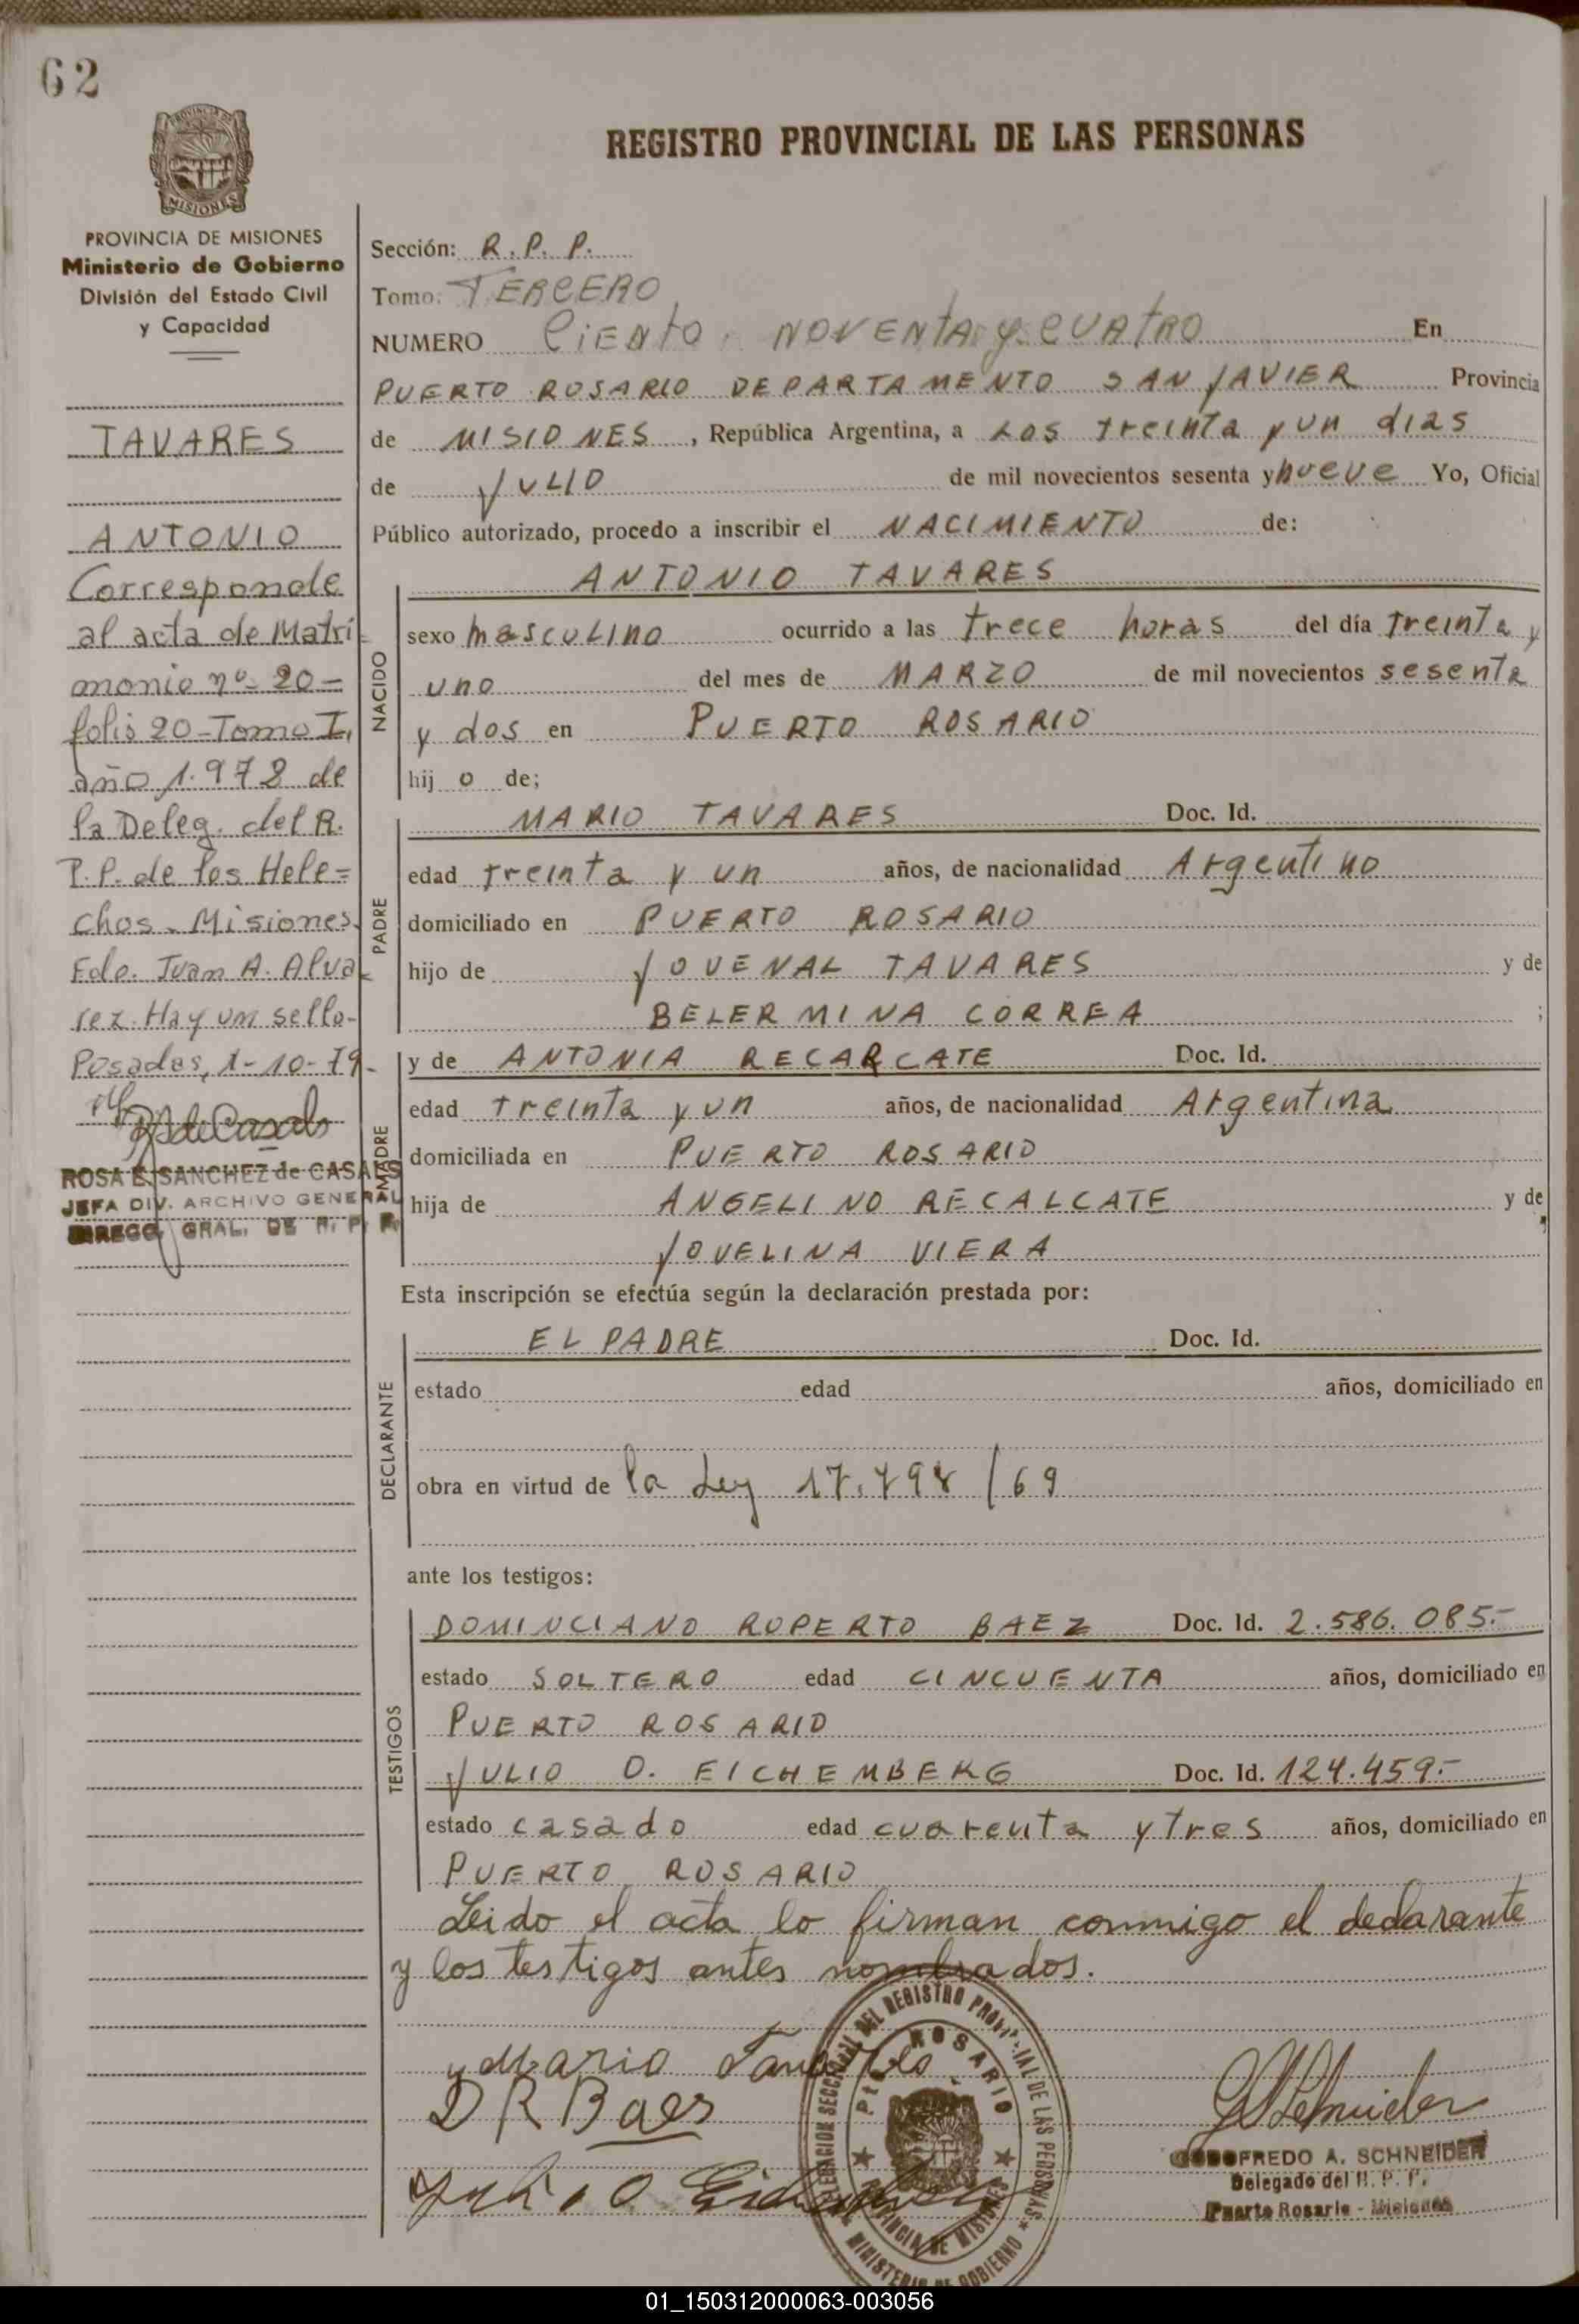 62
PROVINCIA DE
MISIONES
REGISTRO PROVINCIAL DE LAS PERSONAS
PROVINCIA DE MISIONES
Ministerio de Gobierno
División del Estado Civil
y Capacidad
TAVARES
ANTONIO
Corresponde
al acta de Matri-
monio nº 20-
folio 20-Tomo I,
año 1.978 de
la Deleg. del R.
P.P. de los Hele=
chos - Misiones.
Fdo. Juan A. Alva-
rez. Hay un sello-
Posadas, 1-10-79-
RSdeCasals
ROSA E. SANCHEZ de CASALS
JEFA DIV. ARCHIVO GENERAL
DIRECC. GRAL. DE R. P. P.
Sección: R. P. P.
Tomo: TERCERO
NUMERO CIENTO NOVENTA y CUATRO En
PUERTO ROSARIO DEPARTAMENTO SAN JAVIER Provincia
de MISIONES, República Argentina, a Los treinta y un dias
de JULIO de mil novecientos sesenta y nueve Yo, Oficial
Público autorizado, procedo a inscribir el NACIMIENTO de:
NACIDO
ANTONIO TAVARES
sexo masculino ocurrido a las trece horas del día treinta y
uno del mes de MARZO de mil novecientos sesenta
y dos en PUERTO ROSARIO
hij o de;
PADRE
MARIO TAVARES Doc. Id.
edad treinta y un años, de nacionalidad Argentino
domiciliado en PUERTO ROSARIO
hijo de JOUENAL TAVARES y de
BELERMINA CORREA ;
MADRE
y de ANTONIA RECARCATE Doc. Id.
edad treinta y un años, de nacionalidad Argentina
domiciliada en PUERTO ROSARIO
hija de ANGELINO RECALCATE y de
JOVELINA VIERA ;
Esta inscripción se efectúa según la declaración prestada por:
DECLARANTE
EL PADRE Doc. Id.
estado edad años, domiciliado en
obra en virtud de la Ley 17.798 / 69
ante los testigos:
TESTIGOS
DOMINCIANO ROPERTO BAEZ Doc. Id. 2.586.085.-
estado SOLTERO edad CINCUENTA años, domiciliado en
PUERTO ROSARIO
JULIO O. EICHEMBERG Doc. Id. 124.459.-
estado casado edad cuarenta y tres años, domiciliado en
PUERTO ROSARIO
Leido el acta lo firman conmigo el declarante
y los testigos antes nombrados.
Mario Tavares
D R Baes
Julio O
DELEGACION SECCIONAL DEL REGISTRO PROVINCIAL DE LAS PERSONAS
MINISTERIO DE GOBIERNO
Pto ROSARIO
PROVINCIA DE MISIONES
GASchneider
GODOFREDO A. SCHNEIDER
Delegado del R. P. P.
Puerto Rosario - Misiones
01_150312000063-003056